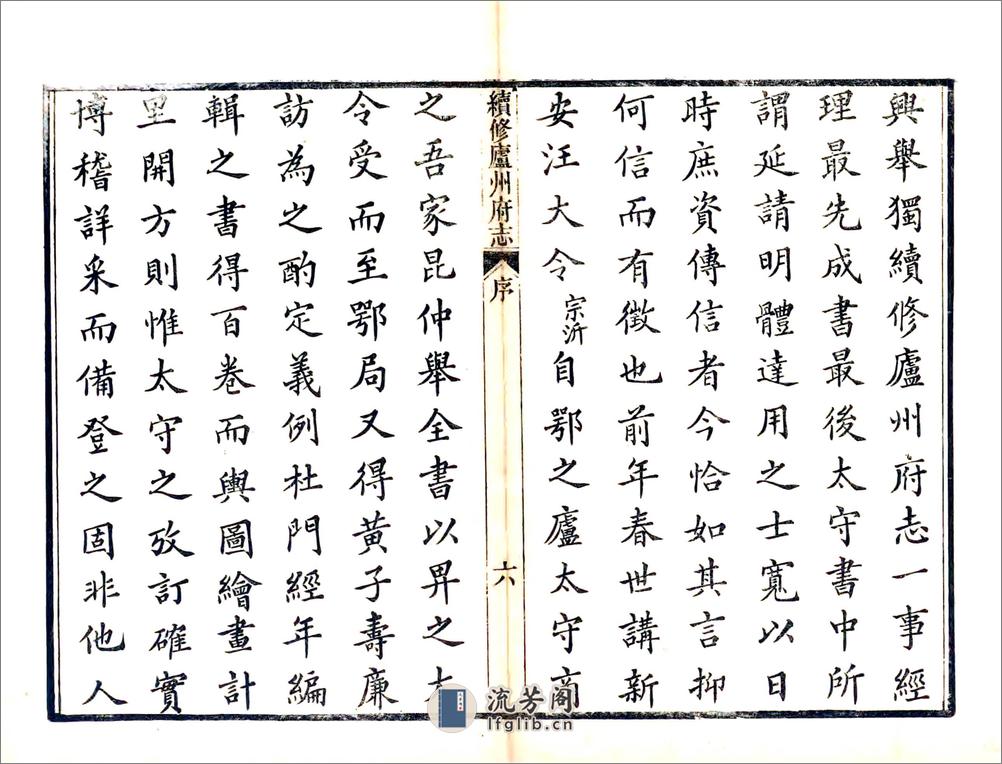 興舉獨續修廬州府志一事經
理最先成書最後太守書中所
謂延請明體達用之士寬以日
時庶資傳信者今恰如其言抑
何信而有徵也前年春世講新
安汪大令宗沂自鄂之廬太守商
續修廬州府志 序 六
之吾家昆仲舉全書以畀之大
令受而至鄂局又得黃子壽廉
訪為之酌定義例杜門經年編
輯之書得百卷而輿圖繪畫計
里開方則惟太守之攷訂確實
博稽詳采而備登之固非他人
流芳阁
lfglib.cn